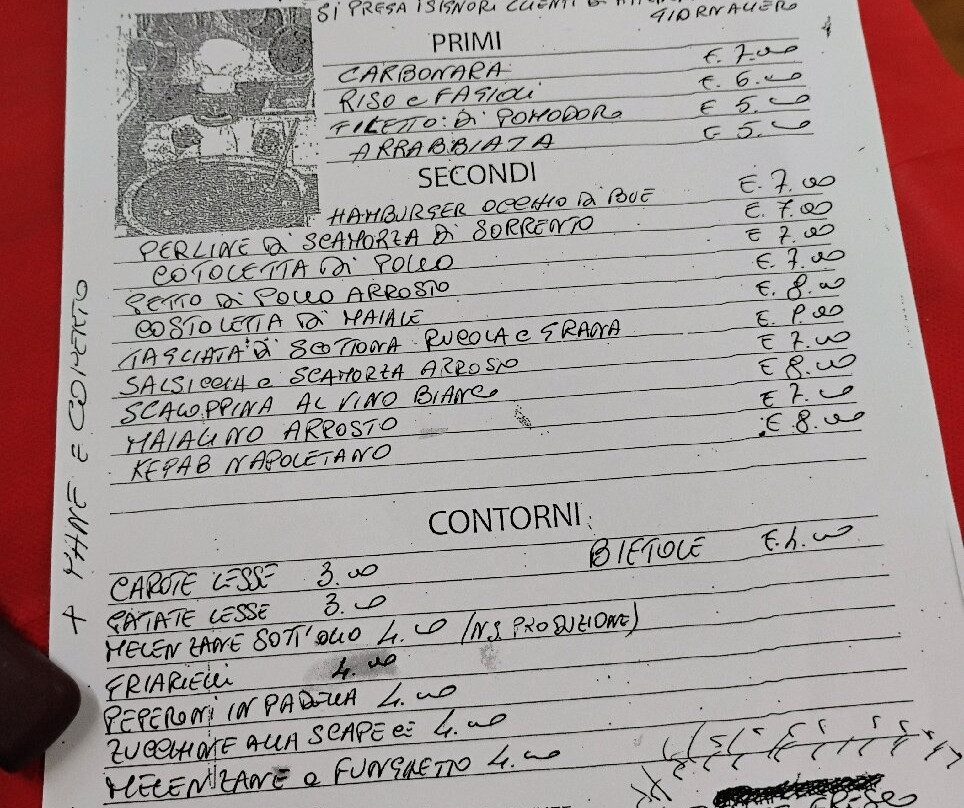 SI PREGA I SIGNORI CLIENTI DI
GIORNALIERO
PRIMI
CARBONARA E. 7.00
RISO e FAGIOLI E. 6.00
FILETTO DI POMODORO E 5.00
ARRABBIATA E 5.00
SECONDI
HAMBURGER OCCHIO DI BUE E. 7.00
PERLINE DI SCAMORZA DI SORRENTO E. 7.00
COTOLETTA DI POLLO E 7.00
PETTO DI POLLO ARROSTO E. 7.00
COSTOLETTA DI MAIALE E. 8.00
TAGLIATA DI SCOTTONA RUCOLA e GRANA E. 8.00
SALSICCIA e SCAMORZA ARROSTO E 7.00
SCALOPPINA AL VINO BIANCO E 8.00
MAIALINO ARROSTO E 7.00
KEPAB NAPOLETANO E 8.00
+ PANE E COPERTO
CONTORNI
BIETOLE E. 4.00
CAROTE LESSE 3.00
PATATE LESSE 3.00
MELENZANE SOTT'OLIO 4.00 (NS PRODUZIONE)
FRIARIELLI 4.00
PEPERONI IN PADELLA 4.00
ZUCCHINE ALLA SCAPECE 4.00
MELENZANE a FUNGHETTO 4.00